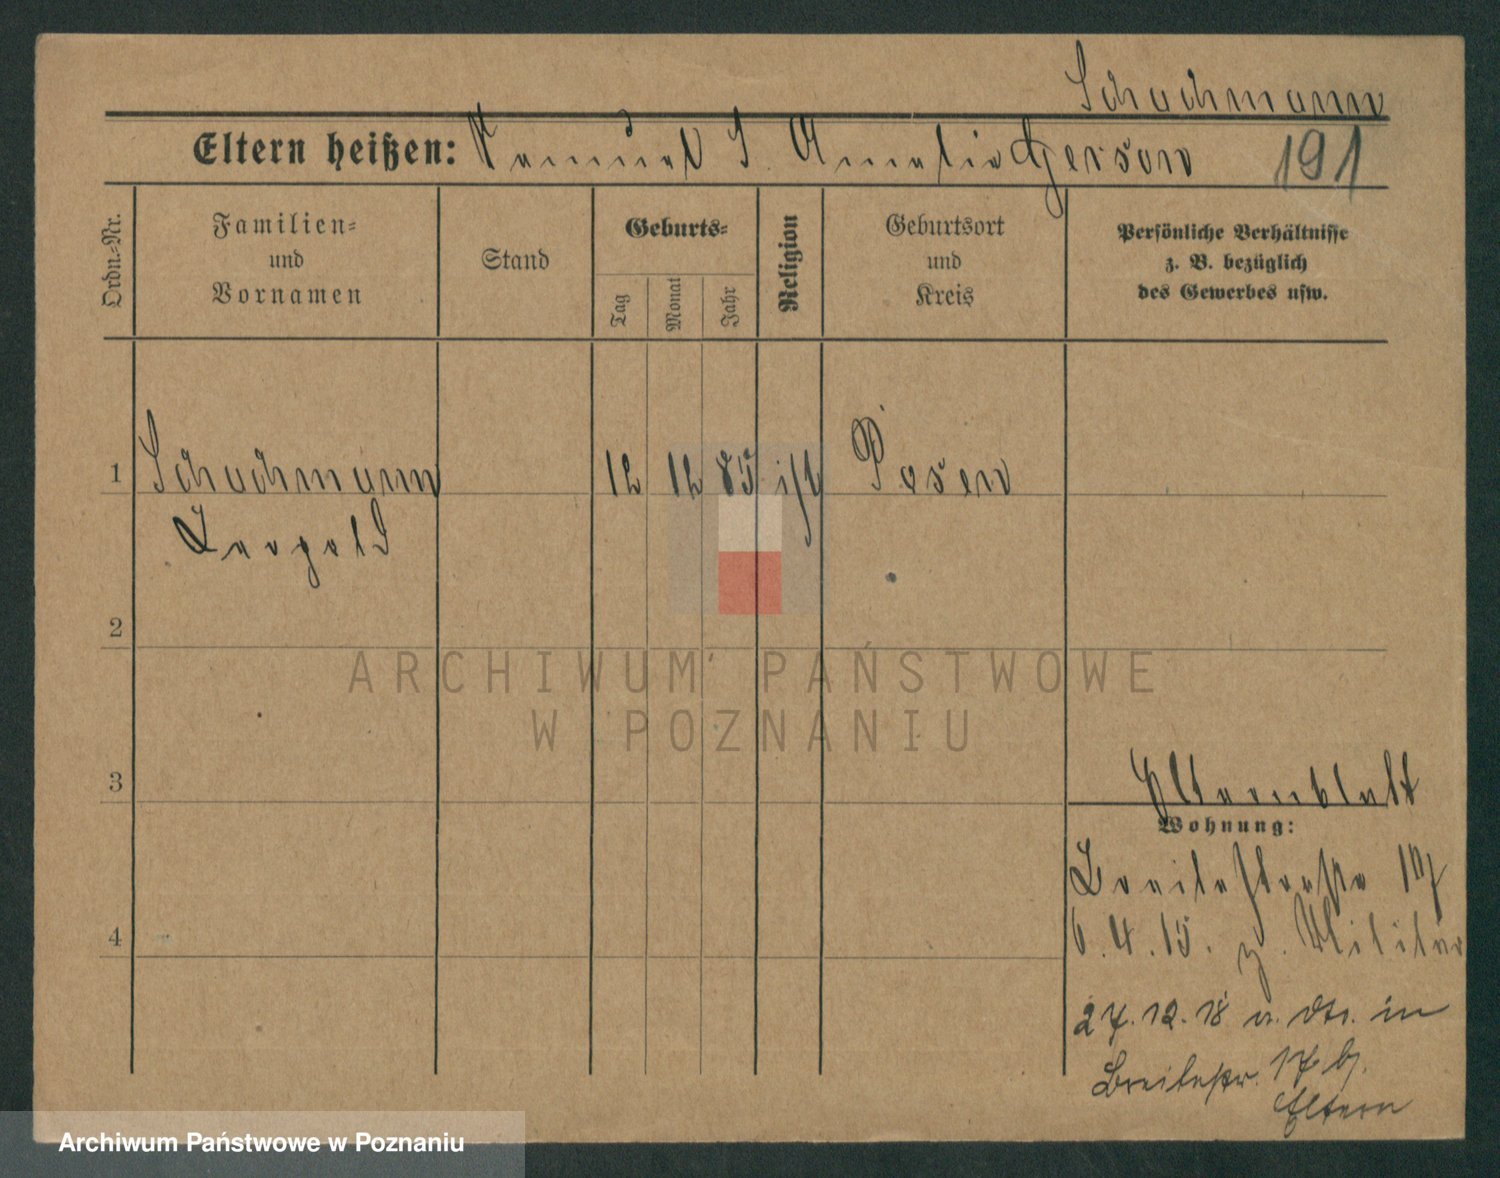 Schachmann
Eltern heißen: Samuel S. Amalie Gerson 191
Ordn.=Nr.
Familien=
und
Vornamen
Stand
Geburts=
Tag
Monat
Jahr
Religion
Geburtsort
und
Kreis
Persönliche Verhältnisse
z. B. bezüglich
des Gewerbes usw.
1 Schachmann 12 12 85 isr Posen
Leopold
2
3
Elternblatt
Wohnung:
Breitestraße 17
4
6.4.15. z. Militär
27.12.18 v. in
Breitestr. 17 b.
Eltern
ARCHIWUM PAŃSTWOWE
W POZNANIU
Archiwum Państwowe w Poznaniu